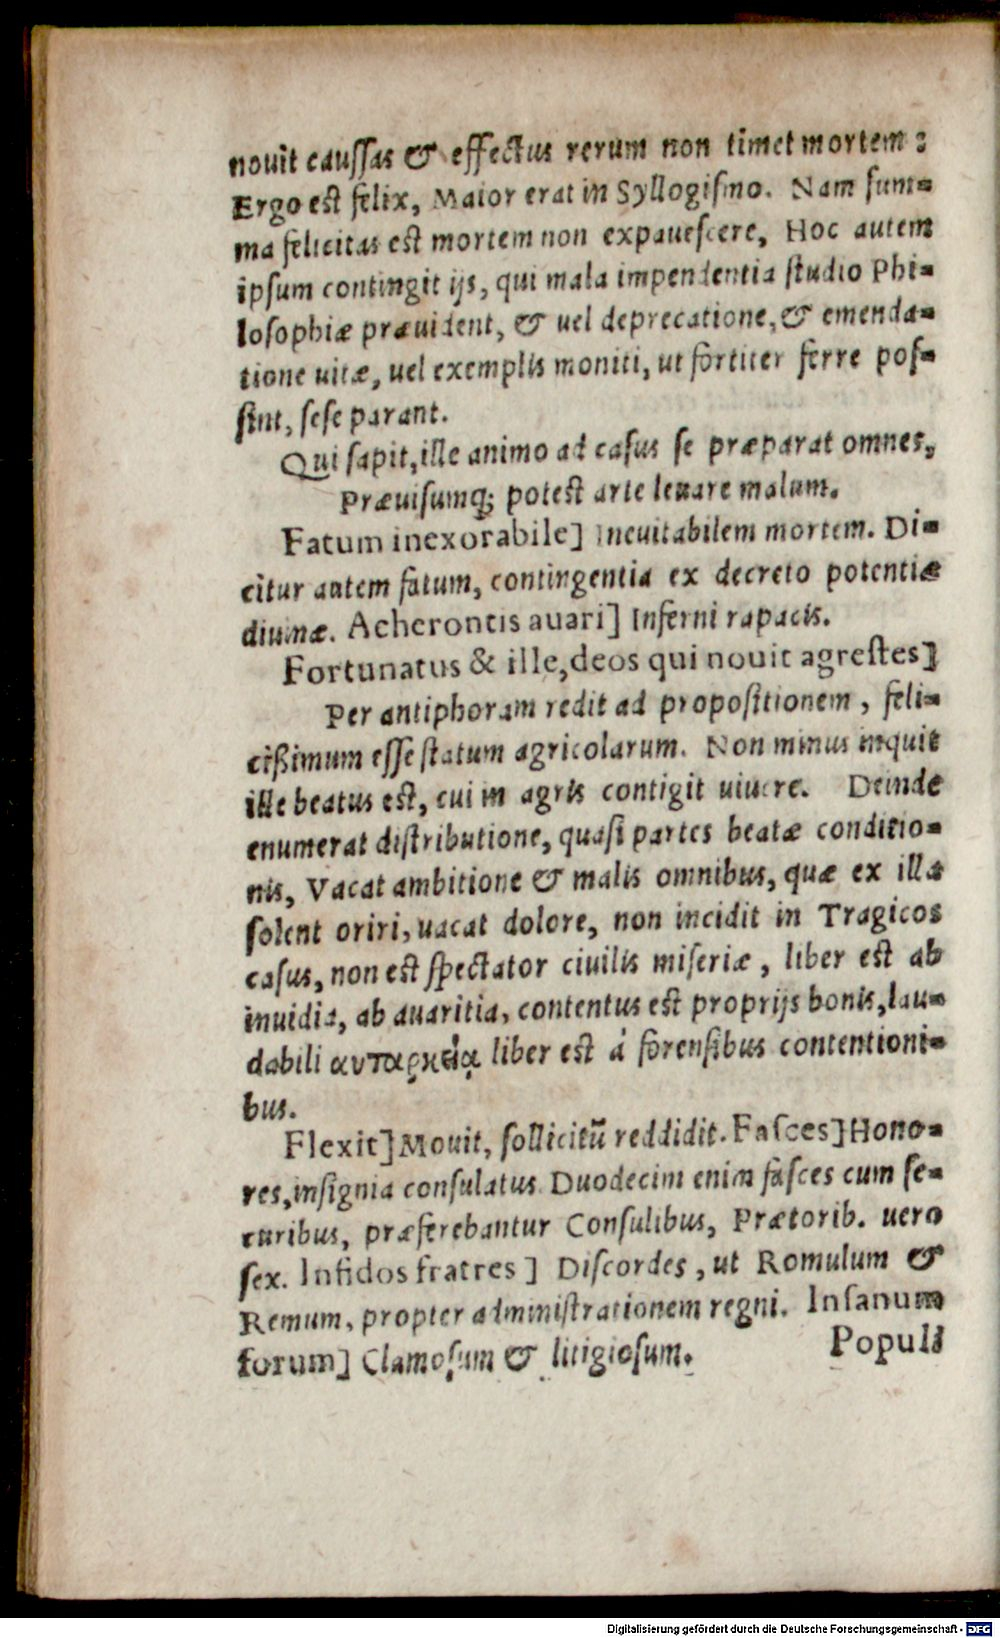 nouit caussas & effectus rerum non timet mortem:
Ergo est felix, Maior erat in Syllogismo. Nam sum-
ma felicitas est mortem non expauescere, Hoc autem
ipsum contingit ijs, qui mala impendentia studio Phi-
losophiæ præuident, & uel deprecatione, & emenda-
tione uitæ, uel exemplis moniti, ut fortiter ferre pos-
sint, sese parant.
Qui sapit, ille animo ad casus se præparat omnes,
Præuisumq; potest arte leuare malum.
Fatum inexorabile] Ineuitabilem mortem. Di-
citur autem fatum, contingentia ex decreto potentiæ
diuinæ. Acherontis auari] Inferni rapacis.
Fortunatus & ille, deos qui nouit agrestes]
Per antiphoram redit ad propositionem, feli-
cißimum esse statum agricolarum. Non minus inquit
ille beatus est, cui in agris contigit uiuere. Deinde
enumerat distributione, quasi partes beatæ conditio-
nis, Vacat ambitione & malis omnibus, quæ ex illa
solent oriri, uacat dolore, non incidit in Tragicos
casus, non est spectator ciuilis miseriæ, liber est ab
inuidia, ab auaritia, contentus est proprijs bonis, lau-
dabili αυταρκεία liber est à forensibus contentioni-
bus.
Flexit] Mouit, sollicitũ reddidit. Fasces] Hono-
res, insignia consulatus. Duodecim enim fasces cum se-
curibus, præferebantur Consulibus, Prætorib. uero
sex. Infidos fratres] Discordes, ut Romulum &
Remum, propter administrationem regni. Insanum
forum] Clamosum & litigiosum.
Populi
Digitalisierung gefördert durch die Deutsche Forschungsgemeinschaft - DFG